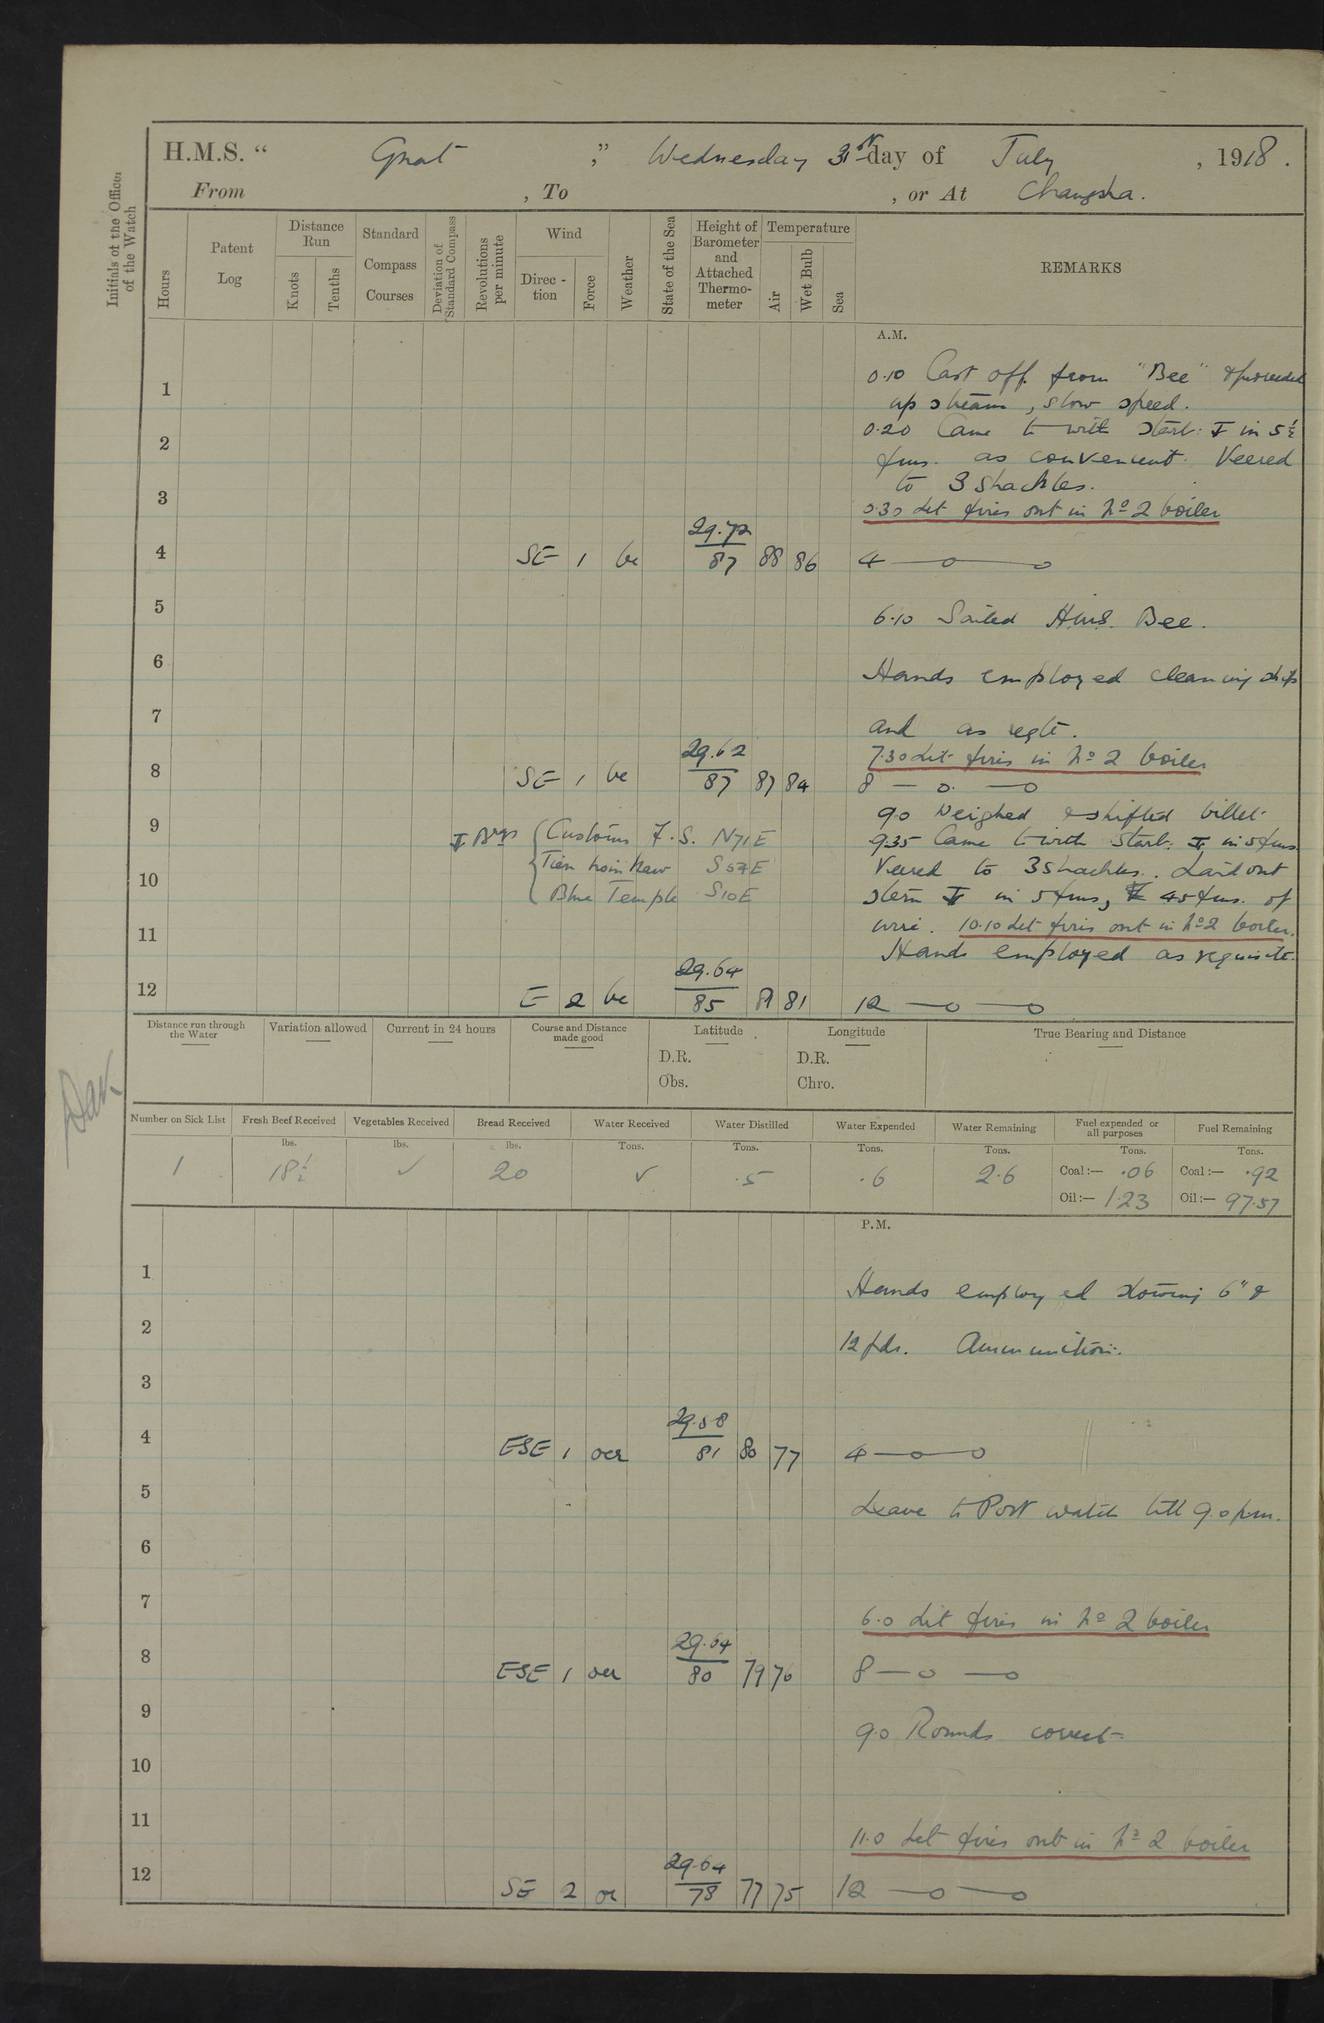 H.M.S. " Gnat ," Wednesday 31st day of July , 1918.
From , To , or At Changsha.
Initials of the Officer of the Watch
Hours
Patent Log
Distance Run
Knots
Tenths
Standard Compass Courses
Deviation of Standard Compass
Revolutions per minute
Wind
Direc-tion
Force
Weather
State of the Sea
Height of Barometer and Attached Thermo-meter
Temperature
Air
Wet Bulb
Sea
REMARKS
A.M.
1 0.10 Cast off from "Bee" & proceeded
up stream, slow speed.
2 0.20 Came to with Starb: ⚓ in 5½
fms. as convenient. Veered
3 to 3 shackles.
0.30 Let fires out in No 2 boiler
29.72
4 SE 1 bc 87 88 86 4 —o—o
5 6.10 Sailed H.M.S. Bee.
6 Hands employed cleaning ship
7 and as reqte.
29.62 7.30 Lit fires in No 2 boiler
8 SE 1 bc 87 87 84 8 — o — o
9.0 Weighed & shifted billet.
9 ⚓ Brgs Customs F.S. N71E 9.35 Came to with Starb. ⚓ in 5 fms.
10 S57E Veered to 3 shackles. Laid out
Blue Temple S10E stern ⚓ in 5 fms, 45 fms. of
11 wire. 10.10 Let fires out in No 2 boiler.
Hands employed as requisite.
29.64
12 E 2 bc 85 81 81 12 —o—o
Distance run through the Water
Variation allowed
Current in 24 hours
Course and Distance made good
Latitude
D.R.
Obs.
Longitude
D.R.
Chro.
True Bearing and Distance
Number on Sick List
Fresh Beef Received
Vegetables Received
Bread Received
Water Received
Water Distilled
Water Expended
Water Remaining
Fuel expended or all purposes
Fuel Remaining
lbs. lbs. lbs. Tons. Tons. Tons. Tons. Tons. Tons.
1 18½ ✓ 20 ✓ .5 .6 2.6 Coal:— .06 Coal:— .92
Oil:— 1.23 Oil:— 97.57
P.M.
1 Hands employed stowing 6" &
2 12 pdr. Ammunition.
3
29.58
4 ESE 1 ocr 81 80 77 4 —o—o
5 Leave to Port watch till 9.0 p.m.
6
7 6.0 Lit fires in No 2 boiler
29.64
8 ESE 1 ocr 80 79 76 8 —o—o
9 9.0 Rounds correct
10
11 11.0 Let fires out in No 2 boiler
29.64
12 SE 2 oc 78 77 75 12 —o—o